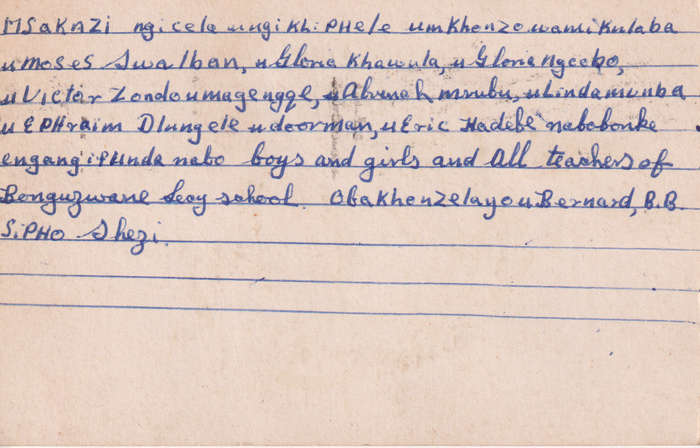 MSaKaZi ngicela ungikhiPHele umkhonzo wami kulaba
u moses Swalban, u Gloria Khawula, u Gloria Ngcobo,
u Victor Zondo umagengqe, u Alvinah mnubu, u Linda munba
u EPHraim Dlungele u doorman, u Eric Hadebe nabobonke
engangiPHnda nabo boys and girls and All teachers of
Benguzwane Secy school. Obakhonzelayo u Bernard, B.B.
SiPHO Shezi.